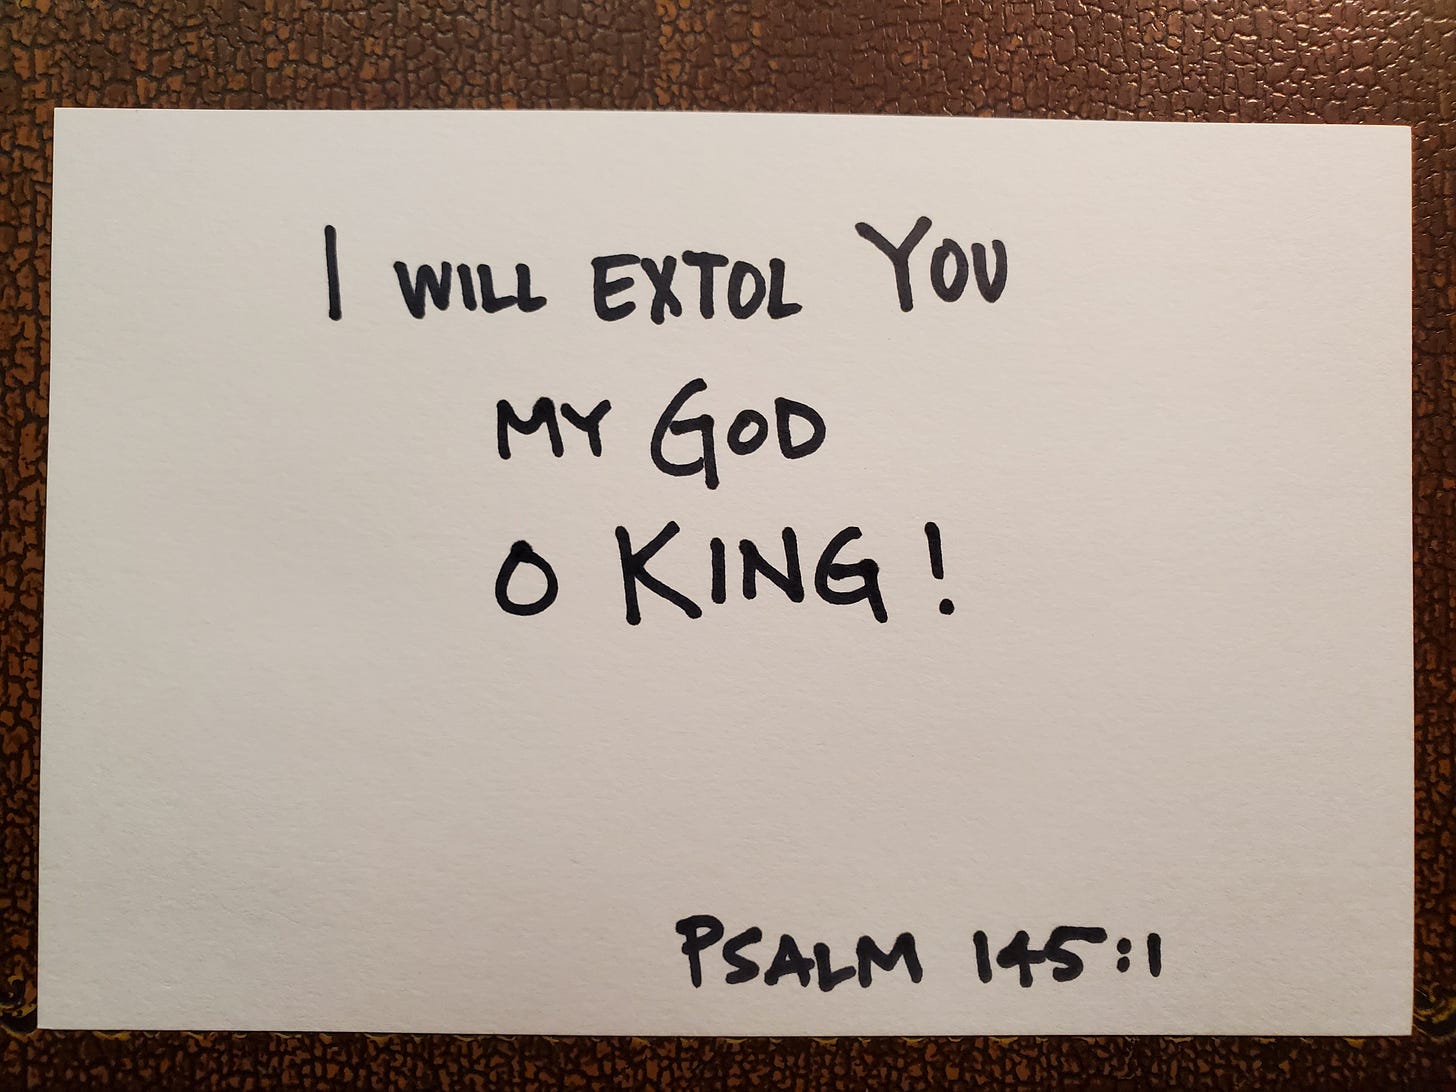 I WILL EXTOL YOU
MY GOD
O KING!
PSALM 145:1